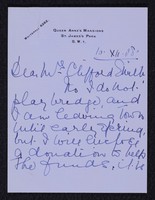 QUEEN ANNE'S MANSIONS
ST. JAMES'S PARK
S.W.1.
Dear Mr Clifford Smith
No I do not
play bridge, and
I am leaving town
until early spring,
but I will enclose
a donation to help
the funds,